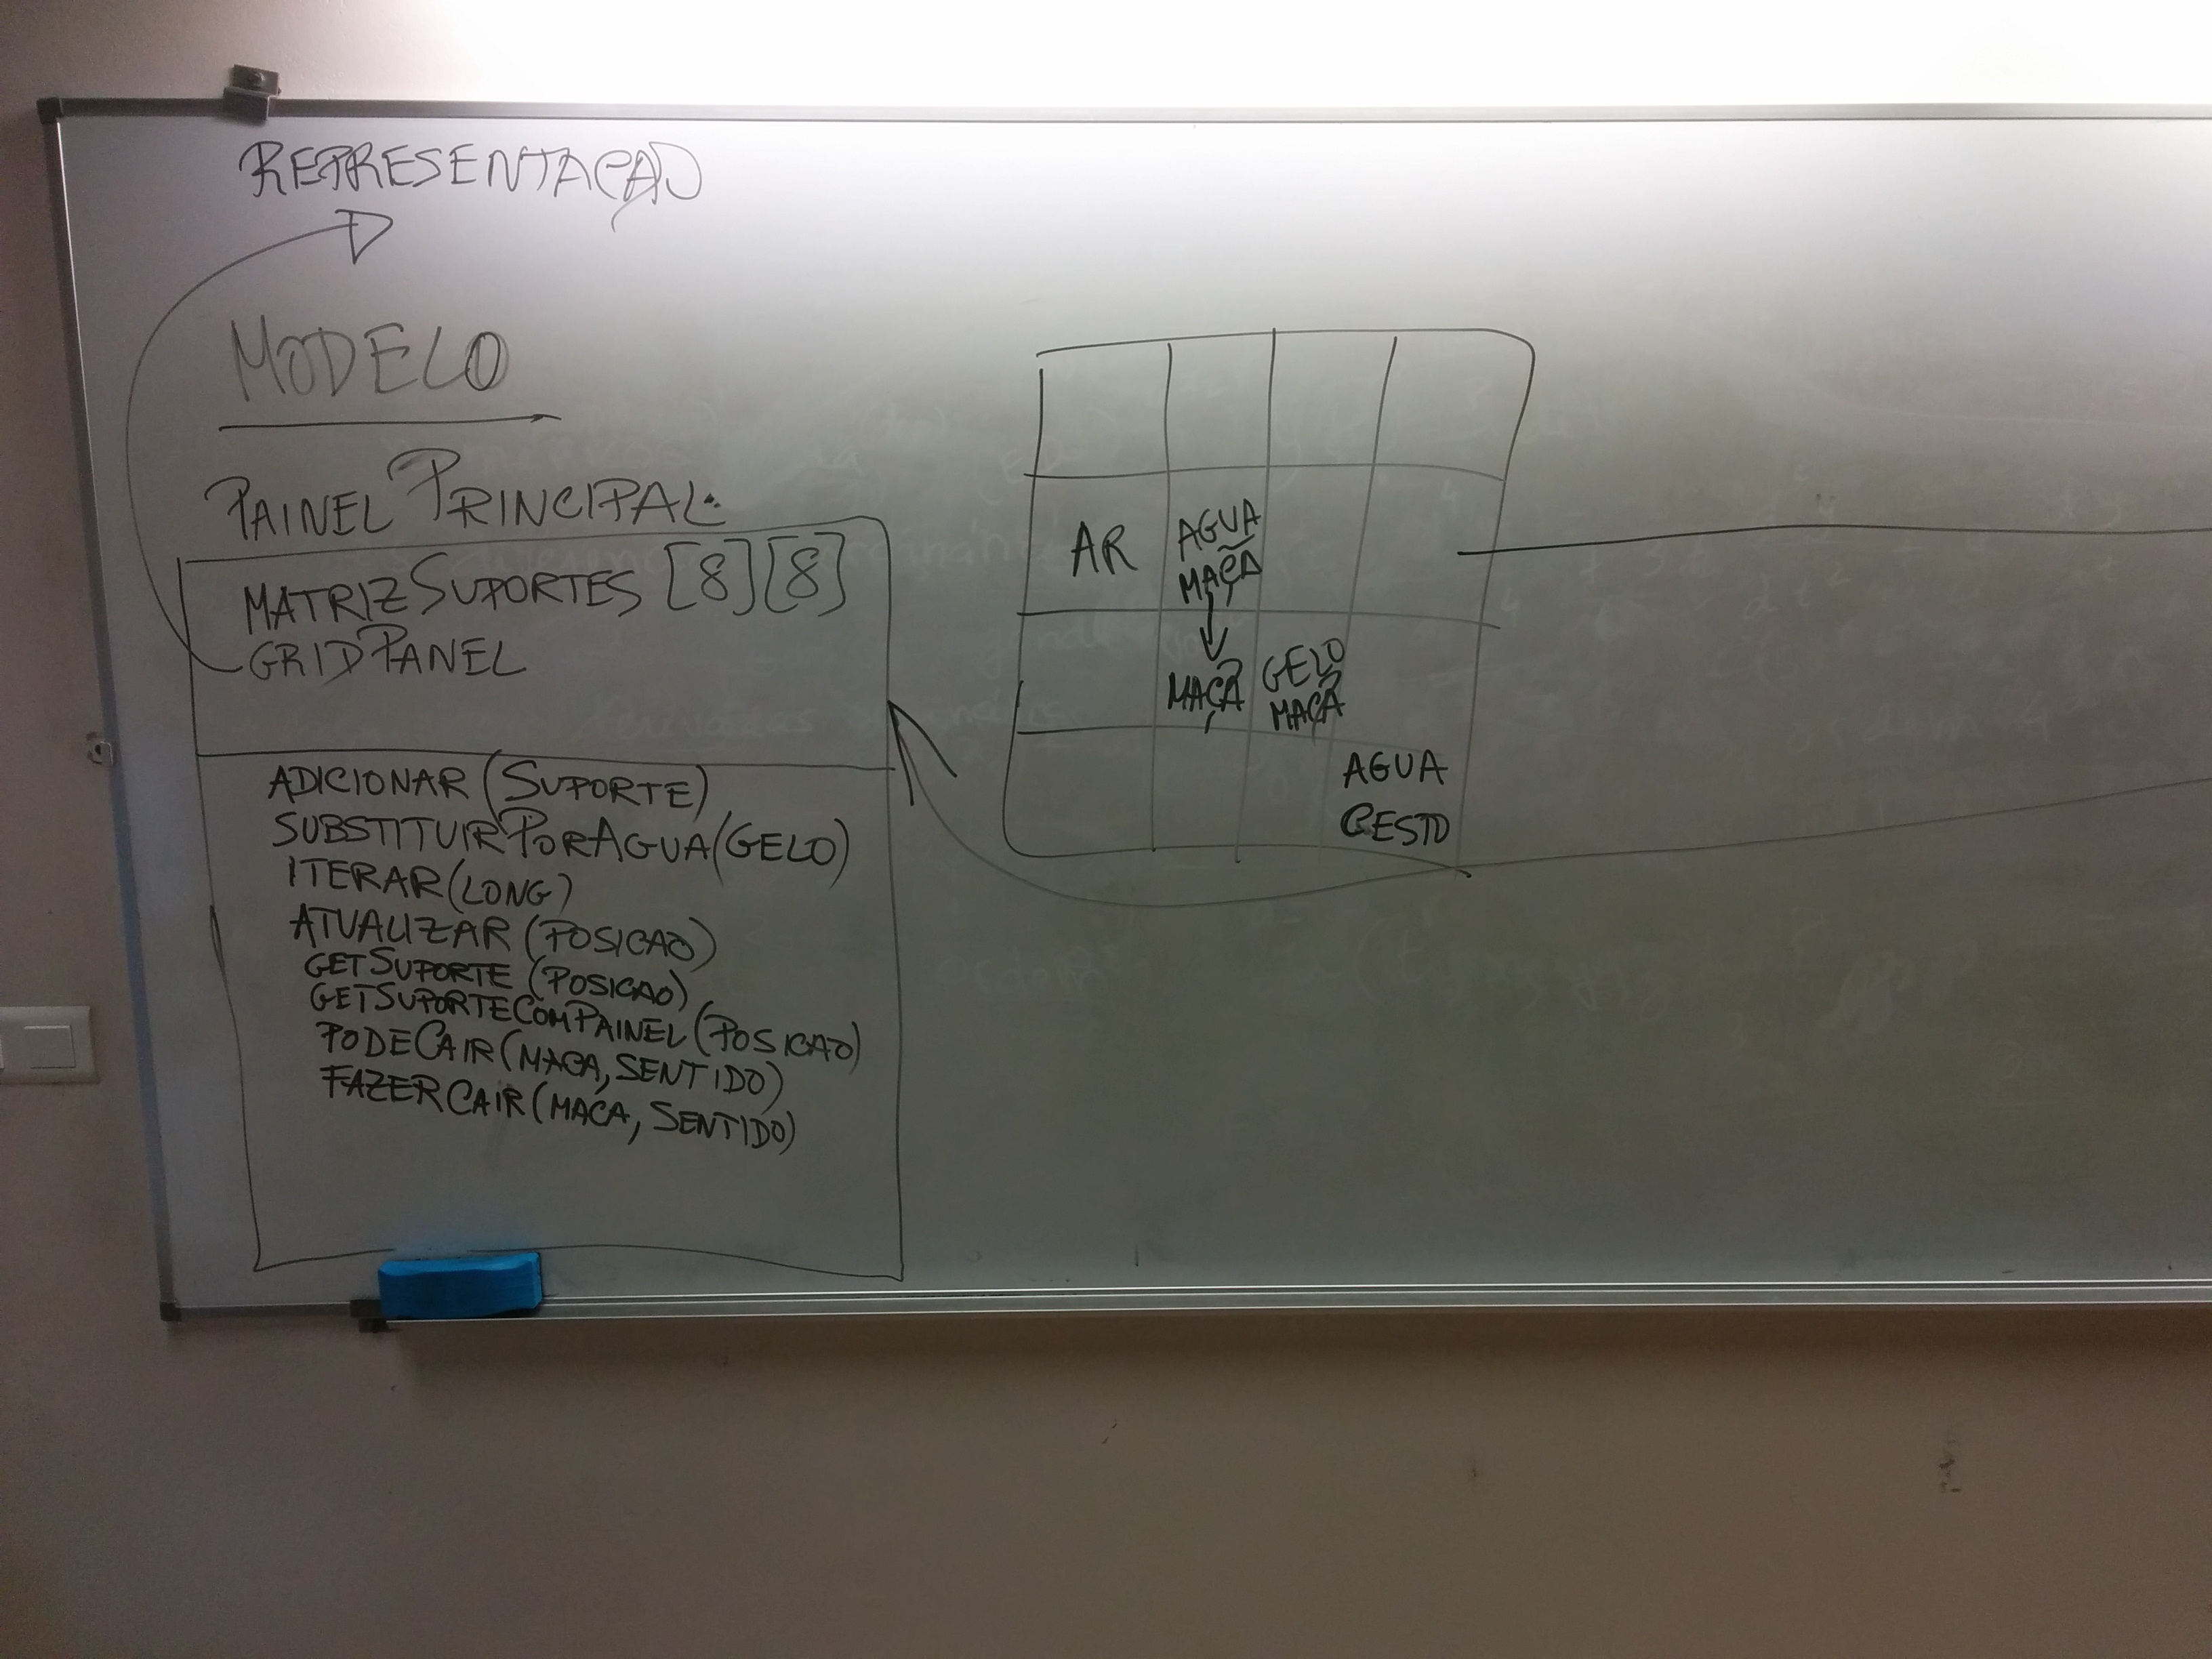 REPRESENTAÇÃO
MODELO
PAINEL PRINCIPAL
MATRIZSUPORTES [8][8]
GRIDPANEL
ADICIONAR (SUPORTE)
SUBSTITUIRPORAGUA(GELO)
ITERAR(LONG)
ATUALIZAR (POSICAO)
GETSUPORTE (POSICAO)
GETSUPORTECOMPAINEL (POSICAO)
PODECAIR (MACA, SENTIDO)
FAZERCAIR (MACA, SENTIDO)
AR
AGUA
MAÇÃ
MAÇÃ
GELO
MAÇÃ
AGUA
CESTO